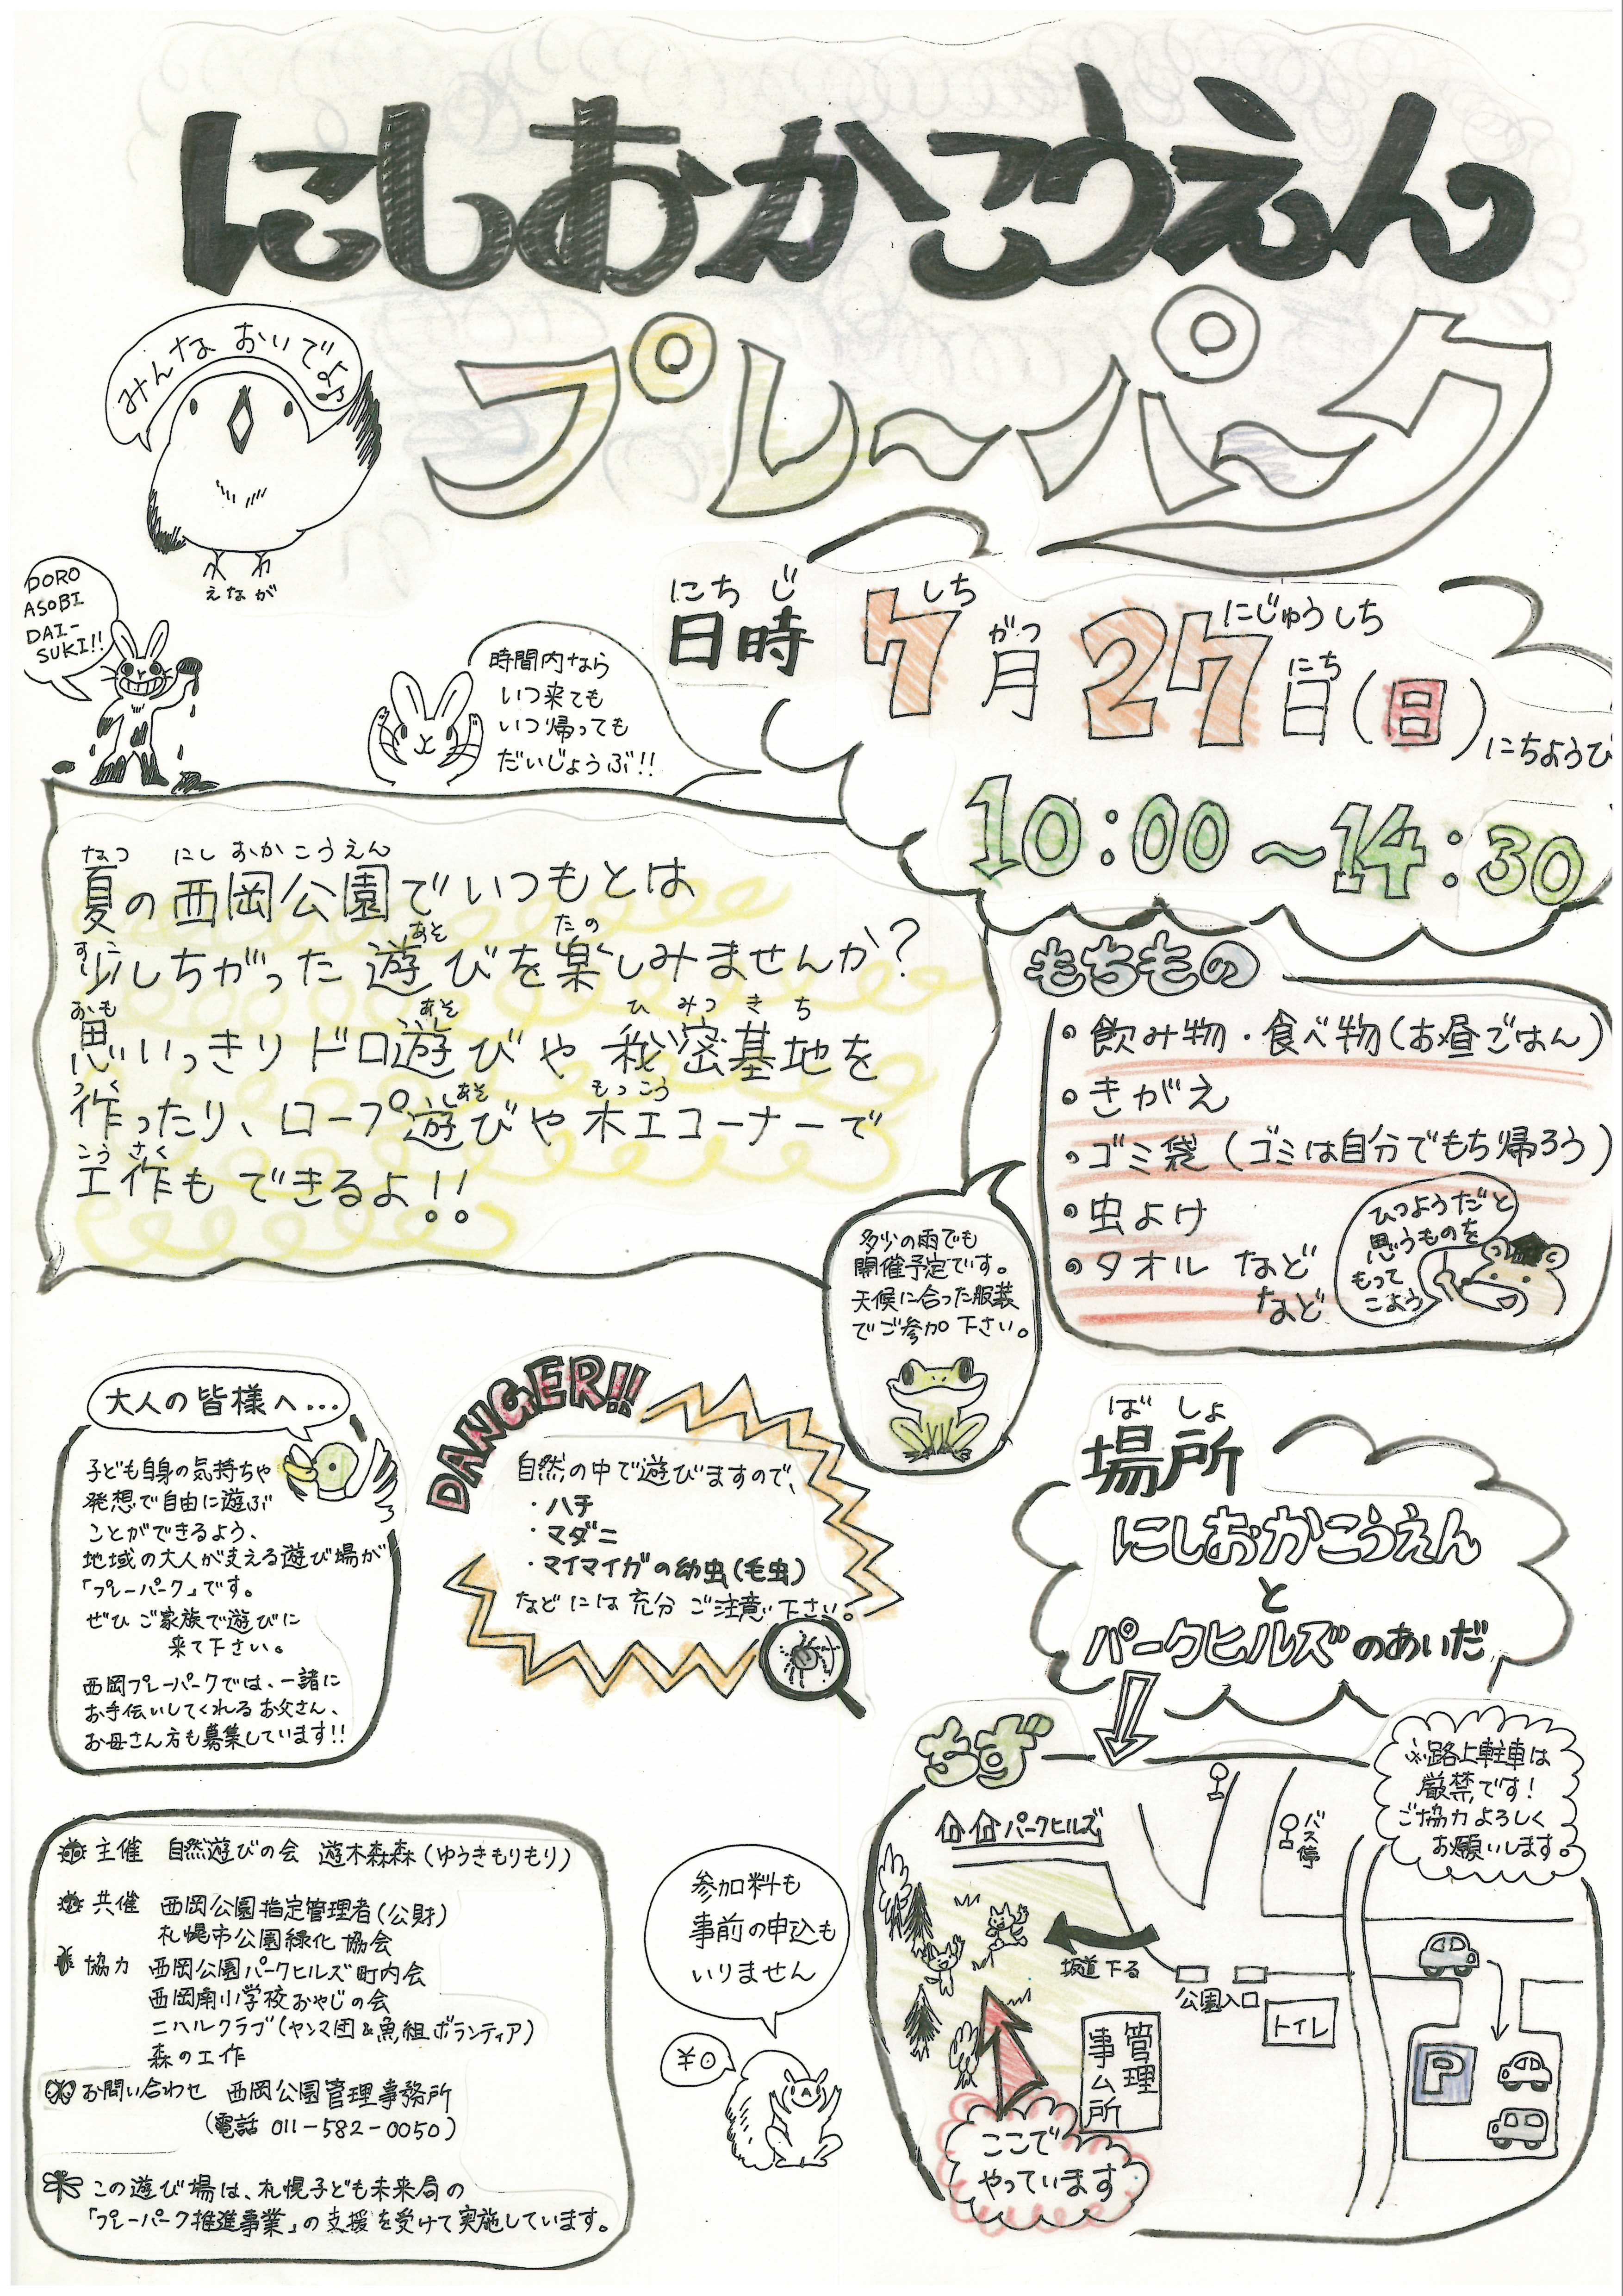 にしおかこうえん
プレーパーク
みんな おいで♪
えなが
DORO
ASOBI
DAI-
SUKI!!
時間内なら
いつ来ても
いつ帰っても
だいじょうぶ!!
にちじ
日時
しち がつ にじゅうしち にち
7月27日(日)
にちようび
10:00〜14:30
なつ にしおかこうえん
夏の西岡公園でいつもとは
すこ あそ たの
少しちがった遊びを楽しみませんか?
おも あそ ひみつきち
思いっきりドロ遊びや秘密基地を
つく あそ もっこう
作ったり、ロープ遊びや木工コーナーで
こうさく
工作もできるよ!!
もちもの
・飲み物・食べ物(お昼ごはん)
・きがえ
・ゴミ袋(ゴミは自分でもち帰ろう)
・虫よけ
・タオル など
など
ひつようだと
思うものを
もって
こよう
多少の雨でも
開催予定です。
天候に合った服装
でご参加下さい。
大人の皆様へ...
子ども自身の気持ちや
発想で自由に遊ぶ
ことができるよう、
地域の大人が支える遊び場が
「プレーパーク」です。
ぜひご家族で遊びに
来て下さい。
西岡プレーパークでは、一緒に
お手伝いしてくれるお父さん、
お母さん方も募集しています!!
DANGER!!
自然の中で遊びますので、
・ハチ
・マダニ
・マイマイガの幼虫(毛虫)
などには充分ご注意下さい。
ばしょ
場所
にしおかこうえん
と
パークヒルズのあいだ
ちず
※路上駐車は
厳禁です!
ご協力よろしく
お願いします。
パークヒルズ
バス停
坂道下る
公園入口
トイレ
管理
事ム所
P
ここで
やっています
参加料も
事前の申込も
いりません
¥0
主催 自然遊びの会 遊木森森(ゆうきもりもり)
共催 西岡公園指定管理者(公財)
札幌市公園緑化協会
協力 西岡公園パークヒルズ町内会
西岡南小学校おやじの会
ニハルクラブ(ヤンマ団&魚組ボランティア)
森の工作
お問い合わせ 西岡公園管理事務所
(電話 011-582-0050)
この遊び場は、札幌子ども未来局の
「プレーパーク推進事業」の支援を受けて実施しています。